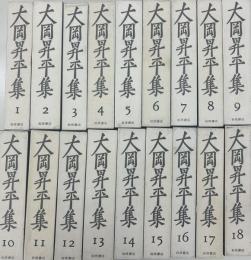 大岡昇平集 1 岩波書店
大岡昇平集 2 岩波書店
大岡昇平集 3 岩波書店
大岡昇平集 4 岩波書店
大岡昇平集 5 岩波書店
大岡昇平集 6 岩波書店
大岡昇平集 7 岩波書店
大岡昇平集 8 岩波書店
大岡昇平集 9 岩波書店
大岡昇平集 10 岩波書店
大岡昇平集 11 岩波書店
大岡昇平集 12 岩波書店
大岡昇平集 13 岩波書店
大岡昇平集 14 岩波書店
大岡昇平集 15 岩波書店
大岡昇平集 16 岩波書店
大岡昇平集 17 岩波書店
大岡昇平集 18 岩波書店